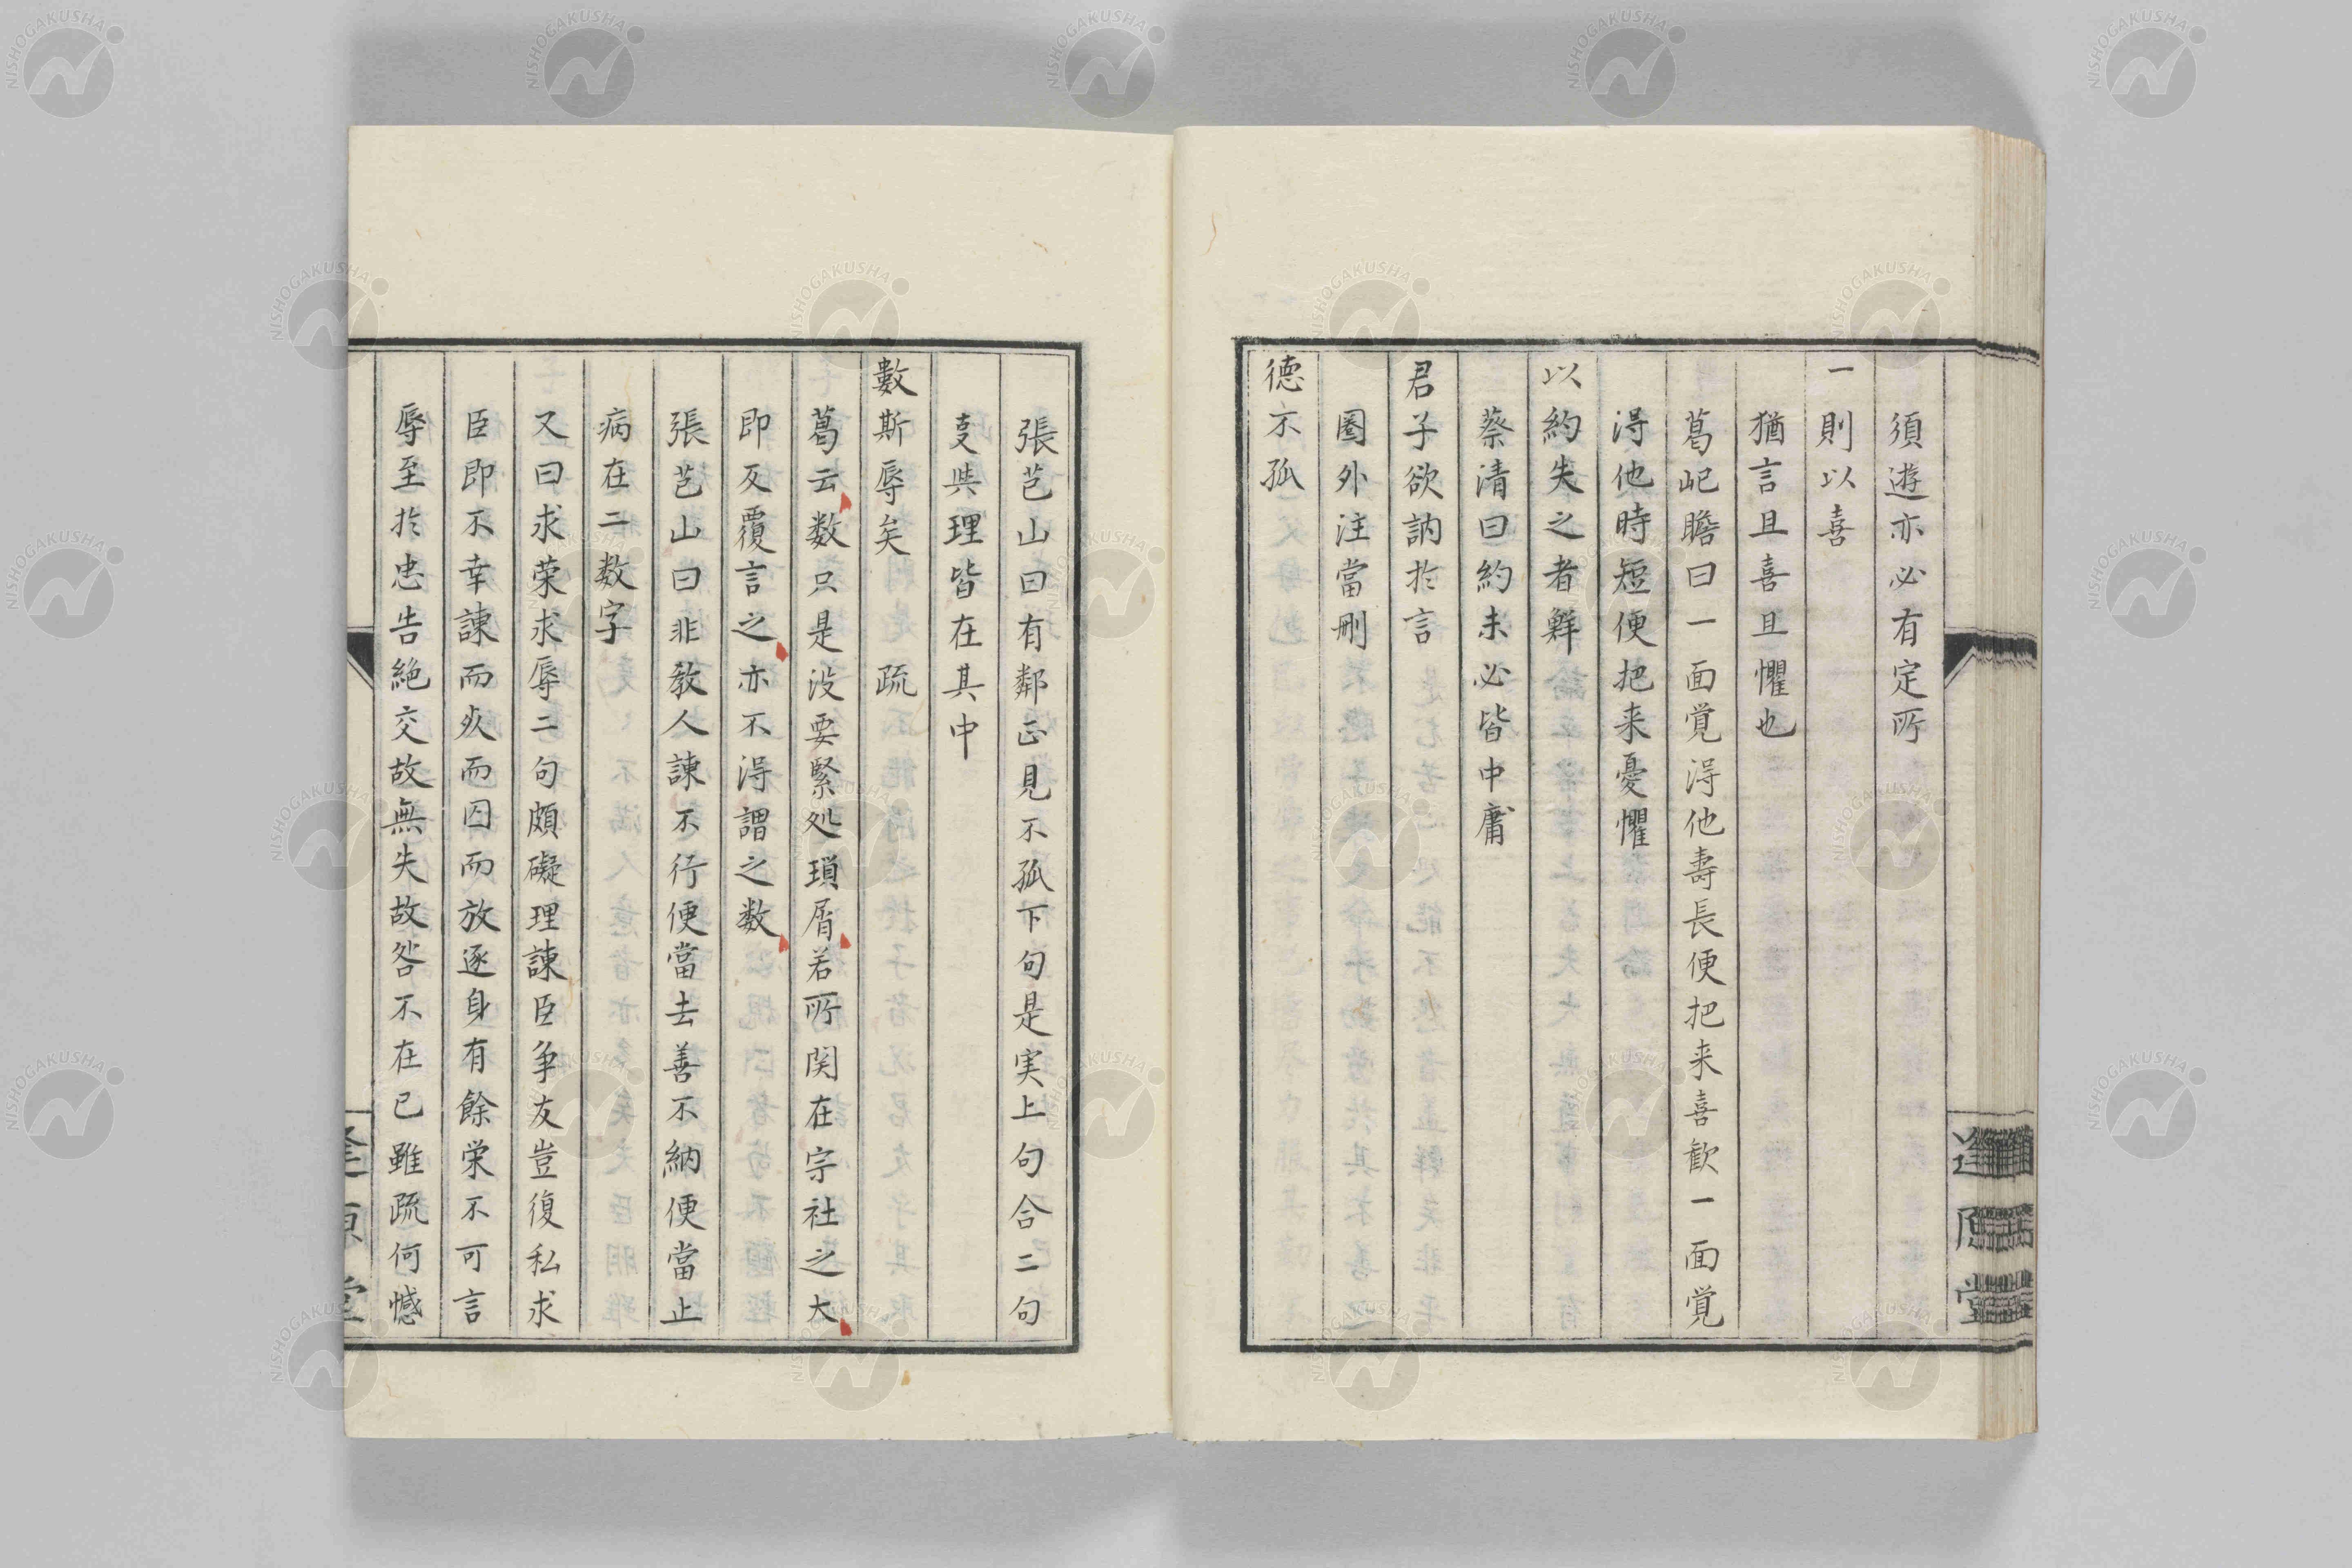 須遊亦必有定所
一則以喜
猶言且喜且懼也
葛屺瞻曰一面覚得他壽長便把来喜歓一面覚
得他時短便把来憂懼
以約失之者鮮
蔡清曰約未必皆中庸
君子欲訥於言
圏外注當刪
徳不孤
張芑山曰有鄰正見不孤下句是実上句合二句
支㒷理皆在其中
數斯辱矣　疏
葛云数只是没要緊処瑣屑若所関在宗社之大
即反覆言之亦不得謂之数
張芑山曰非教人諌不行便當去善不納便當止
病在二数字
又曰求荣求辱二句頗礙理諌臣争友豈復私求
臣即不幸諌而㱏而囚而放逐身有餘栄不可言
辱至於忠告絶交故無失故咎不在已雖疏何憾
NISHOGAKUSHA